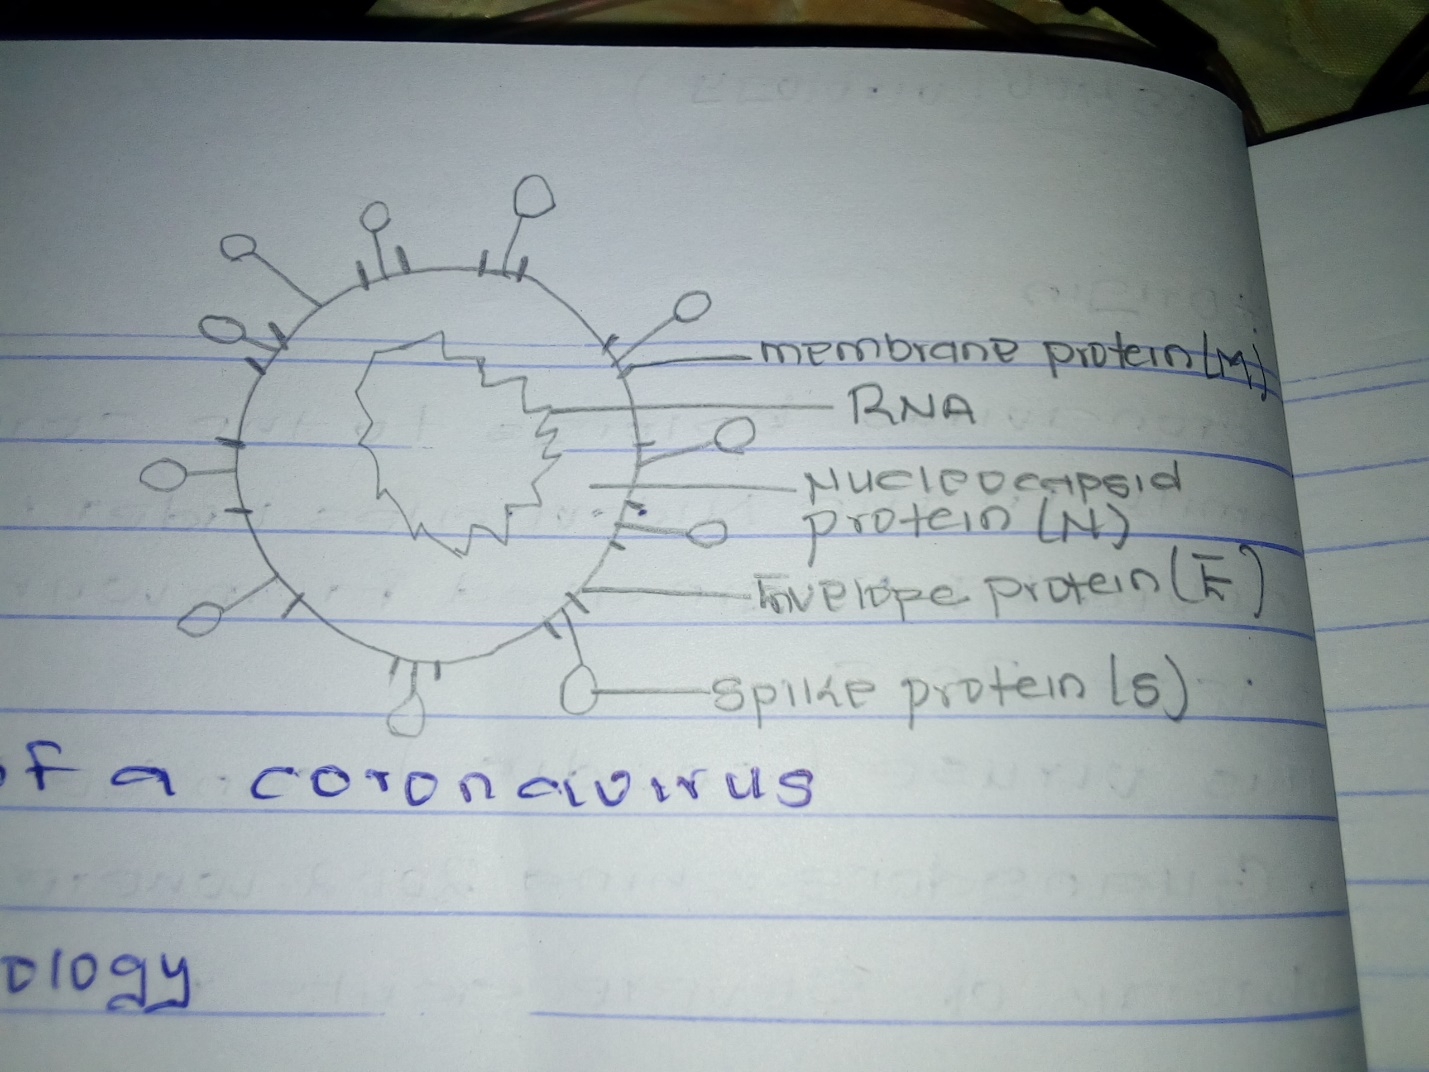 membrane protein (M)
RNA
Nucleocapsid
protein (N)
Envelope protein (E)
Spike protein (S)
of a coronavirus
ology